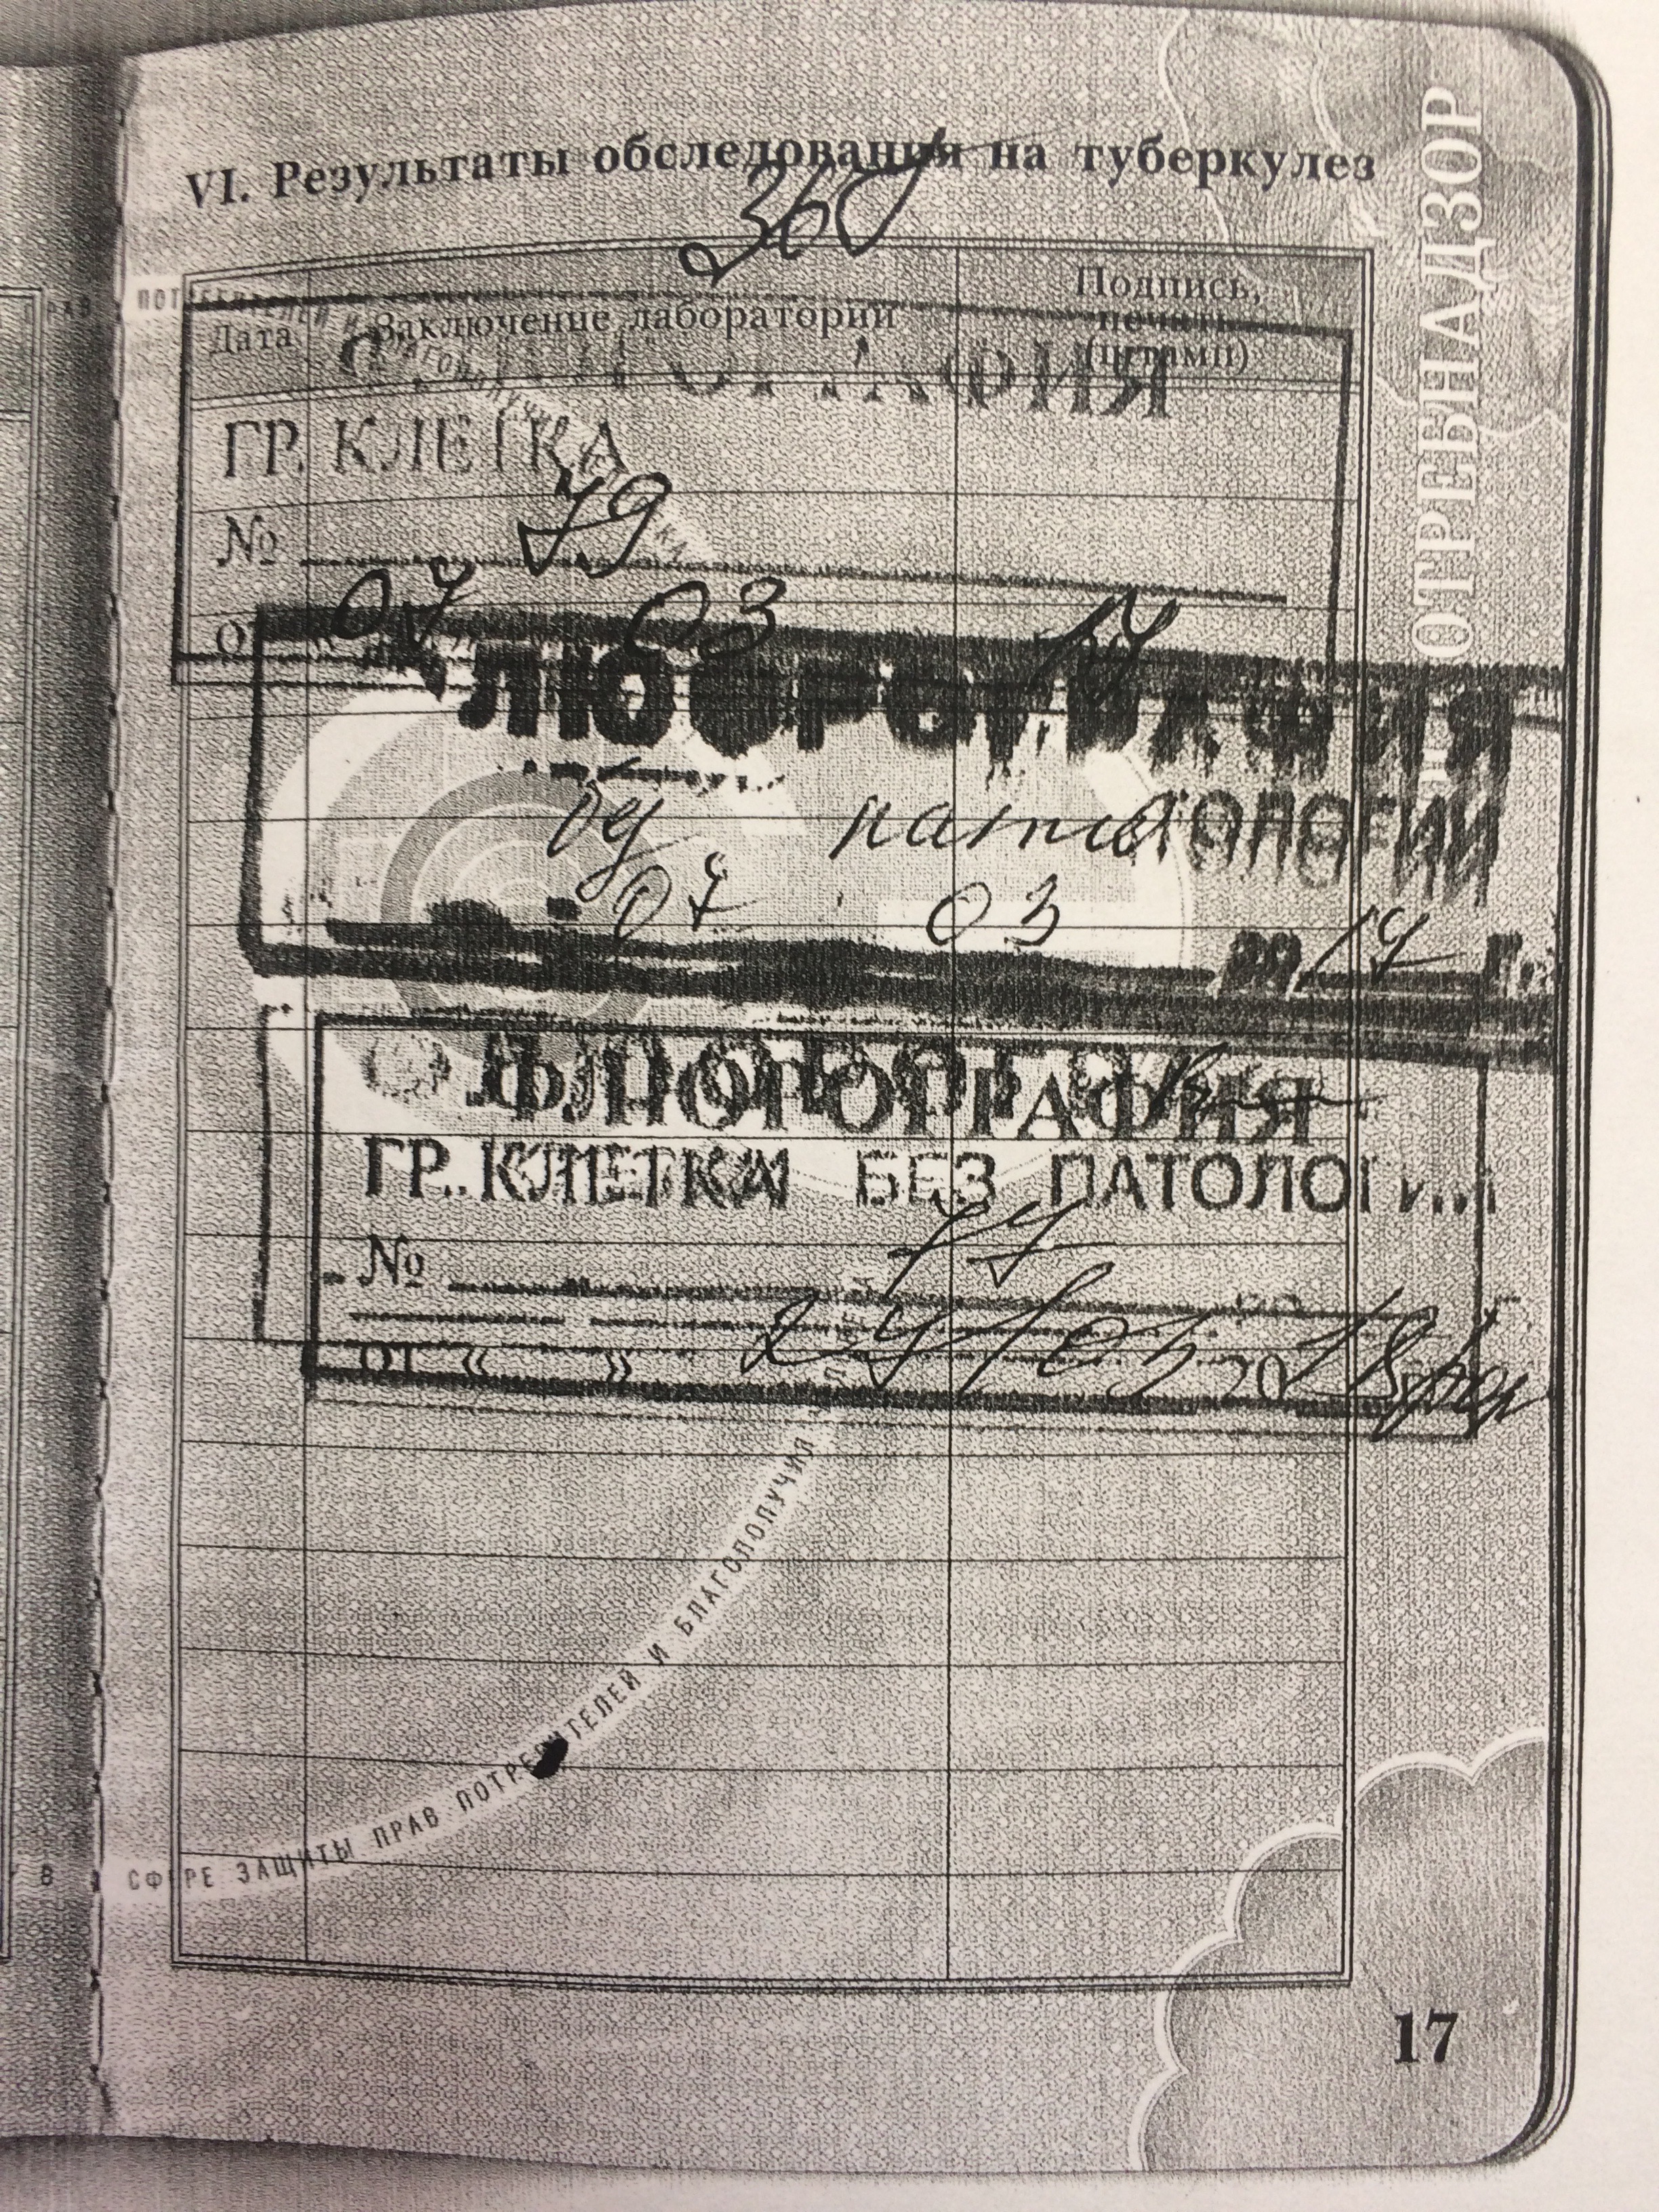 VI. Результаты обследования на туберкулез
360
Дата
Заключение лаборатории
Подпись,
печать
(штамп)
ГР. КЛЕТКА
№ 79
07 03 17
ФЛЮОРОГРАФИЯ
без патологии
07 03 2017 г.
ФЛЮОРОГРАФИЯ
ГР. КЛЕТКА БЕЗ ПАТОЛОГИ
№ 77
от « » 20 18
СФЕРЕ ЗАЩИТЫ ПРАВ ПОТРЕБИТЕЛЕЙ И БЛАГОПОЛУЧИЯ
ОТРЕБНАДЗОР
17